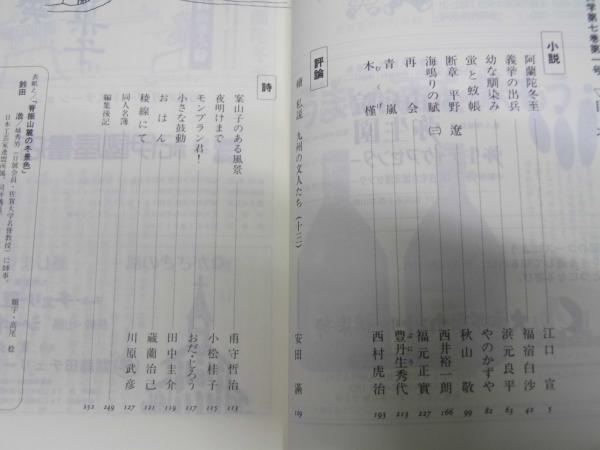 学第七巻第一号
小説
阿蘭陀冬至 江口 宣 5
義挙の出兵 福宿白沙 42
幼な馴染み 浜元良平 63
蛍と蚊帳 やのかずや 82
断章 平野 遼 秋山 敬 99
海鳴りの賦(三) 西井裕一朗 166
再会 福元正實 227
青嵐 豊丹生秀代 213
木槿 西村虎治 193
評論
私流 九州の文人たち(十三) 安田 満 129
詩
案山子のある風景 甫守哲治 113
夜明けまで 小松桂子 115
モンブラン君! おだ・じろう 117
小さな鼓動 田中圭介 119
おはん 蔵蘭治己 121
稜線にて 川原武彦 127
同人名簿 249
編集後記 252
表紙え/「脊振山麓の冬景色」
鈴田 滋/城秀男(日展会員・佐賀大学名誉教授)に師事。
日本工芸家連盟所属。
題字・高尾 稔